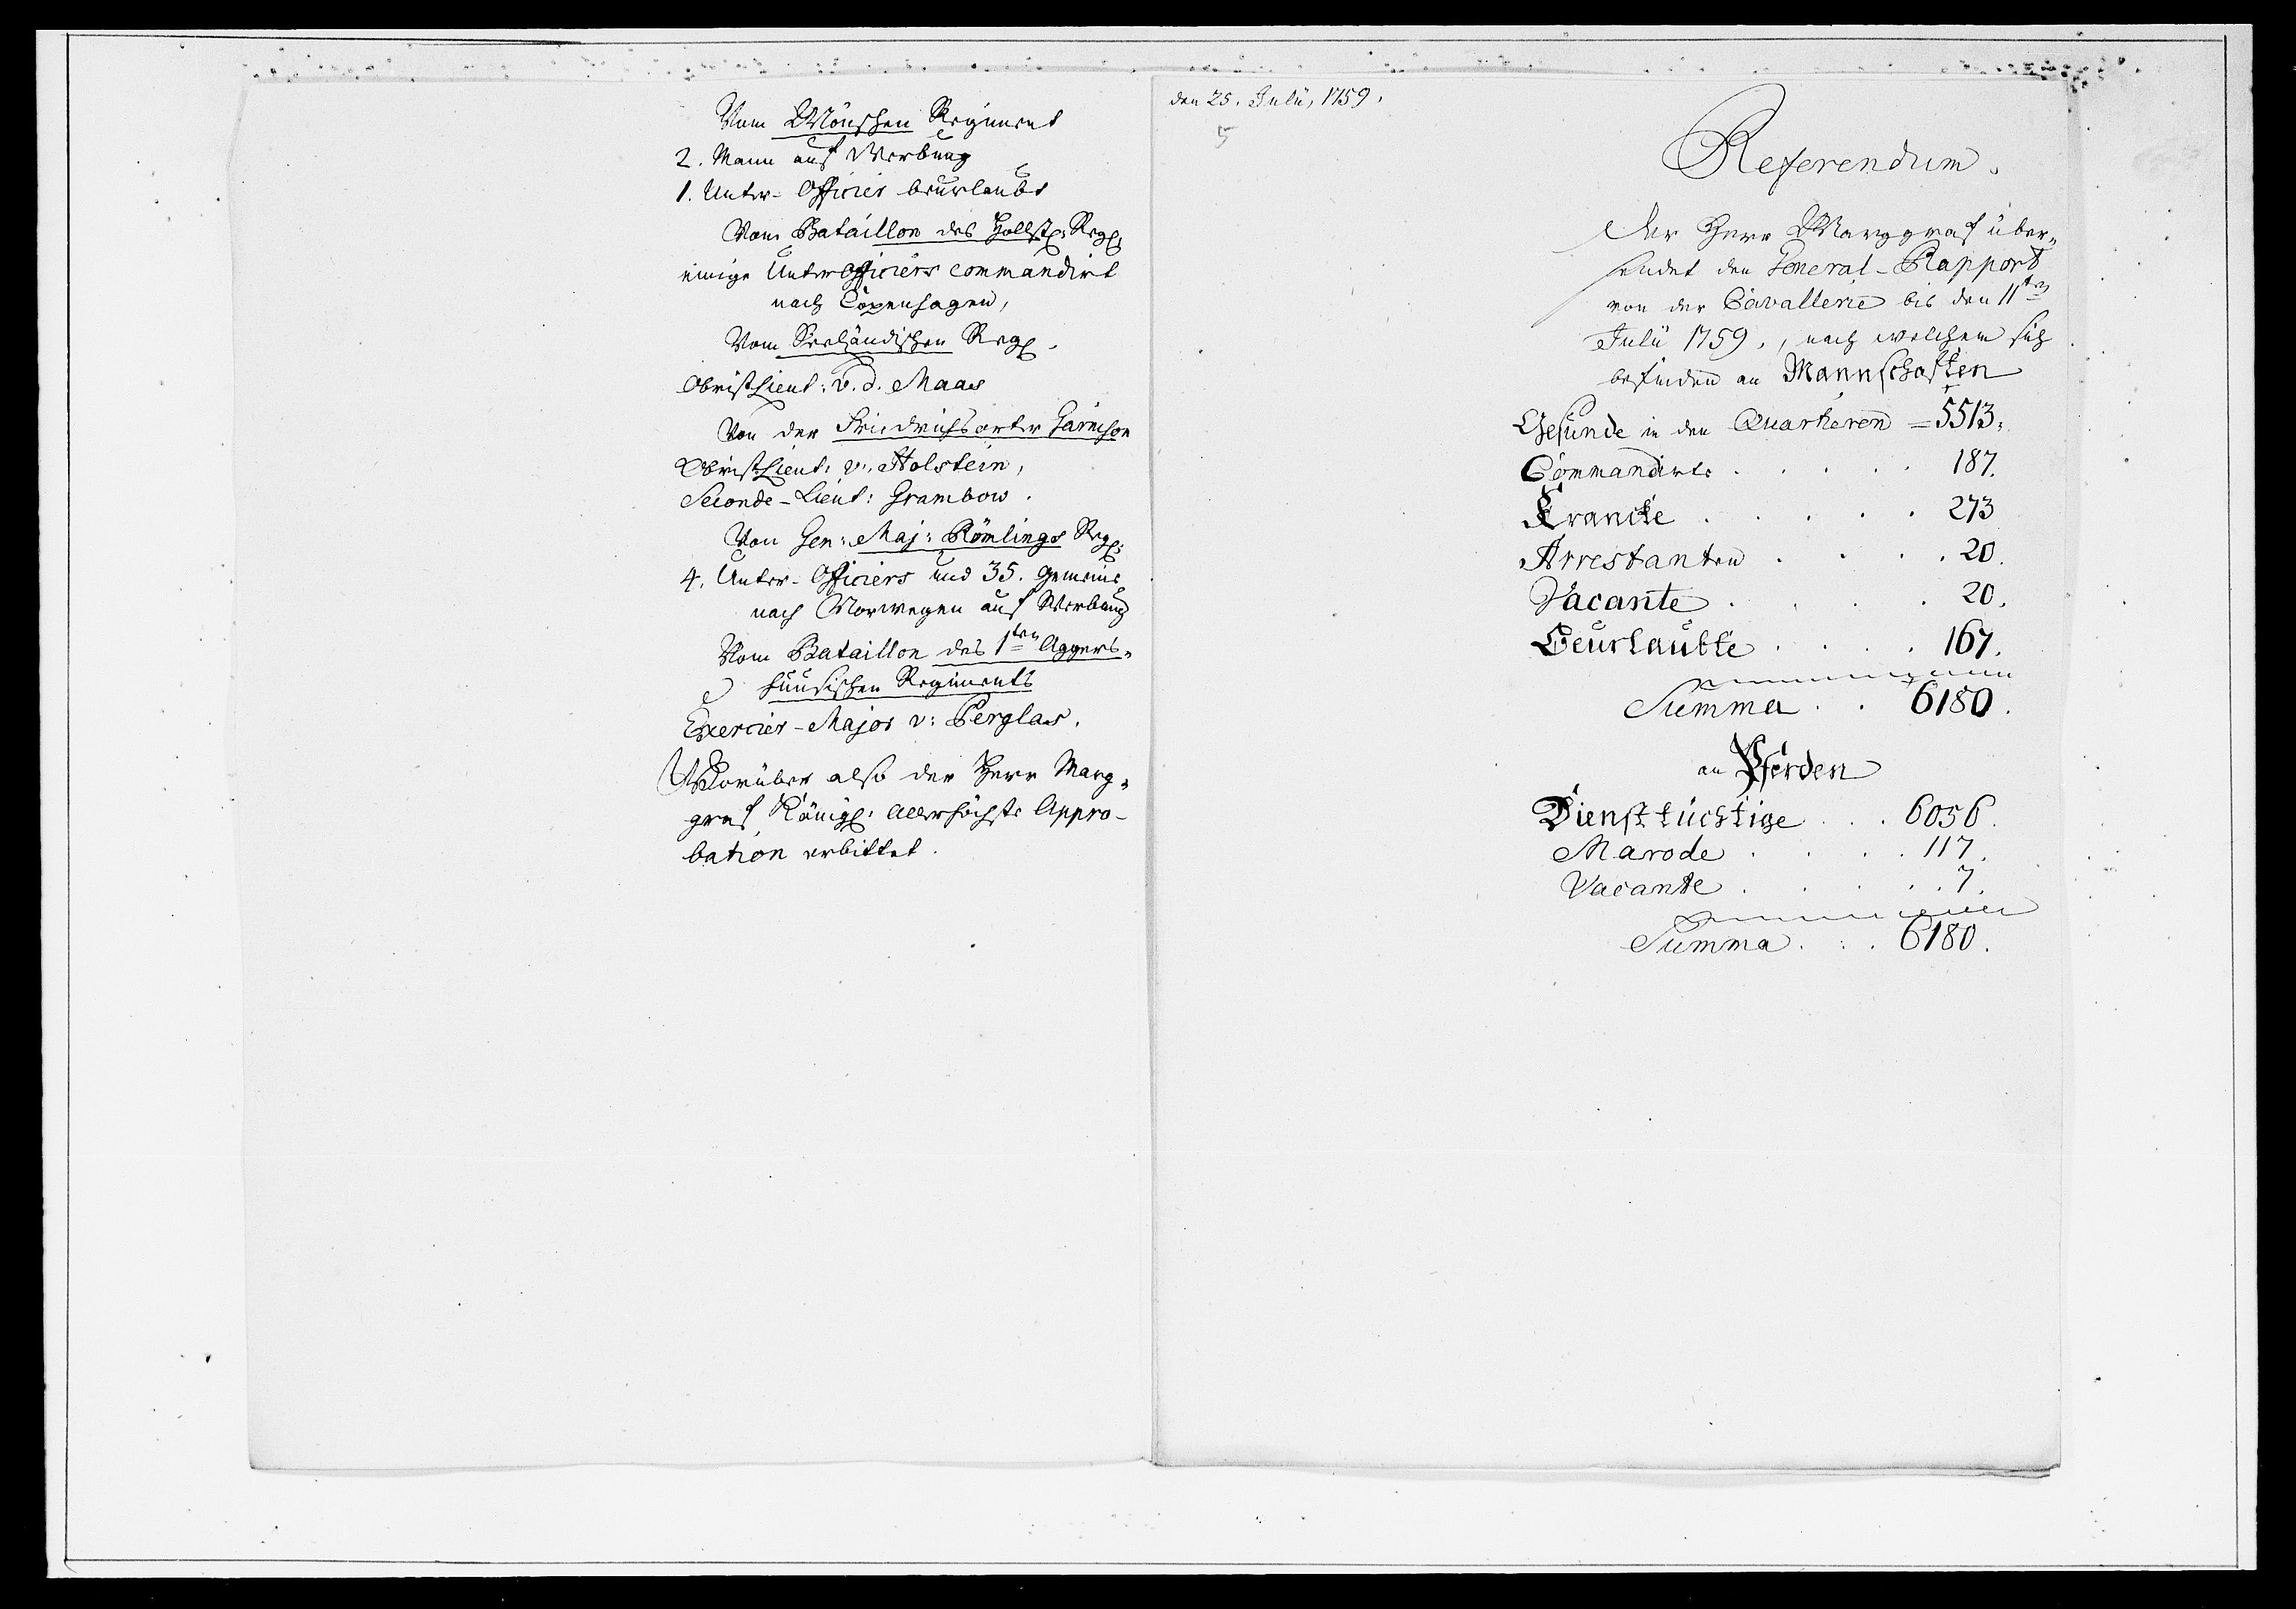 Vom Mönschen Regiment
2. Mann auf Werbung
1. Unter-Officier beurlaubt
Vom Bataillon des Hollst: Reg:
einige Unterofficiers commandirt
nach Copenhagen,
Vom Seeländischen Reg:
ObristLieut: v. d. Maas
Von der Friedrichsorter Garnison
ObristLieut: v. Holstein,
Seconde-Lieut: Grambow.
Von Gen: Maj: Römlings Reg:
4. Unter-Officiers und 35. Gemeine
nach Norwegen auf Werbung
Vom Bataillon des 1ten Aggers-
huusischen Regiments
Exercier-Major v: Perglas.
Worüber also der Herr Marg-
graf Königl: allerhöchste Appro-
bation erbittet.
den 25. Julii, 1759.
5
Referendum.
Der Herr Marggraf über-
sendet den General-Rapport
von der Cavallerie bis den 11ten
Julii 1759., nach welchem sich
befinden an Mannschafften
Gesunde in den Quartieren = 5513.
Commandirte . . . . . 187.
Krancke . . . . . 273
Arrestanten . . . . 20.
Vacante . . . . 20.
Beurlaubte . . . . 167.
Summa . . 6180.
an Pferden
Diensttüchtige . . . 6056.
Marode . . . . 117.
Vacante . . . . . 7.
Summa . . . 6180.